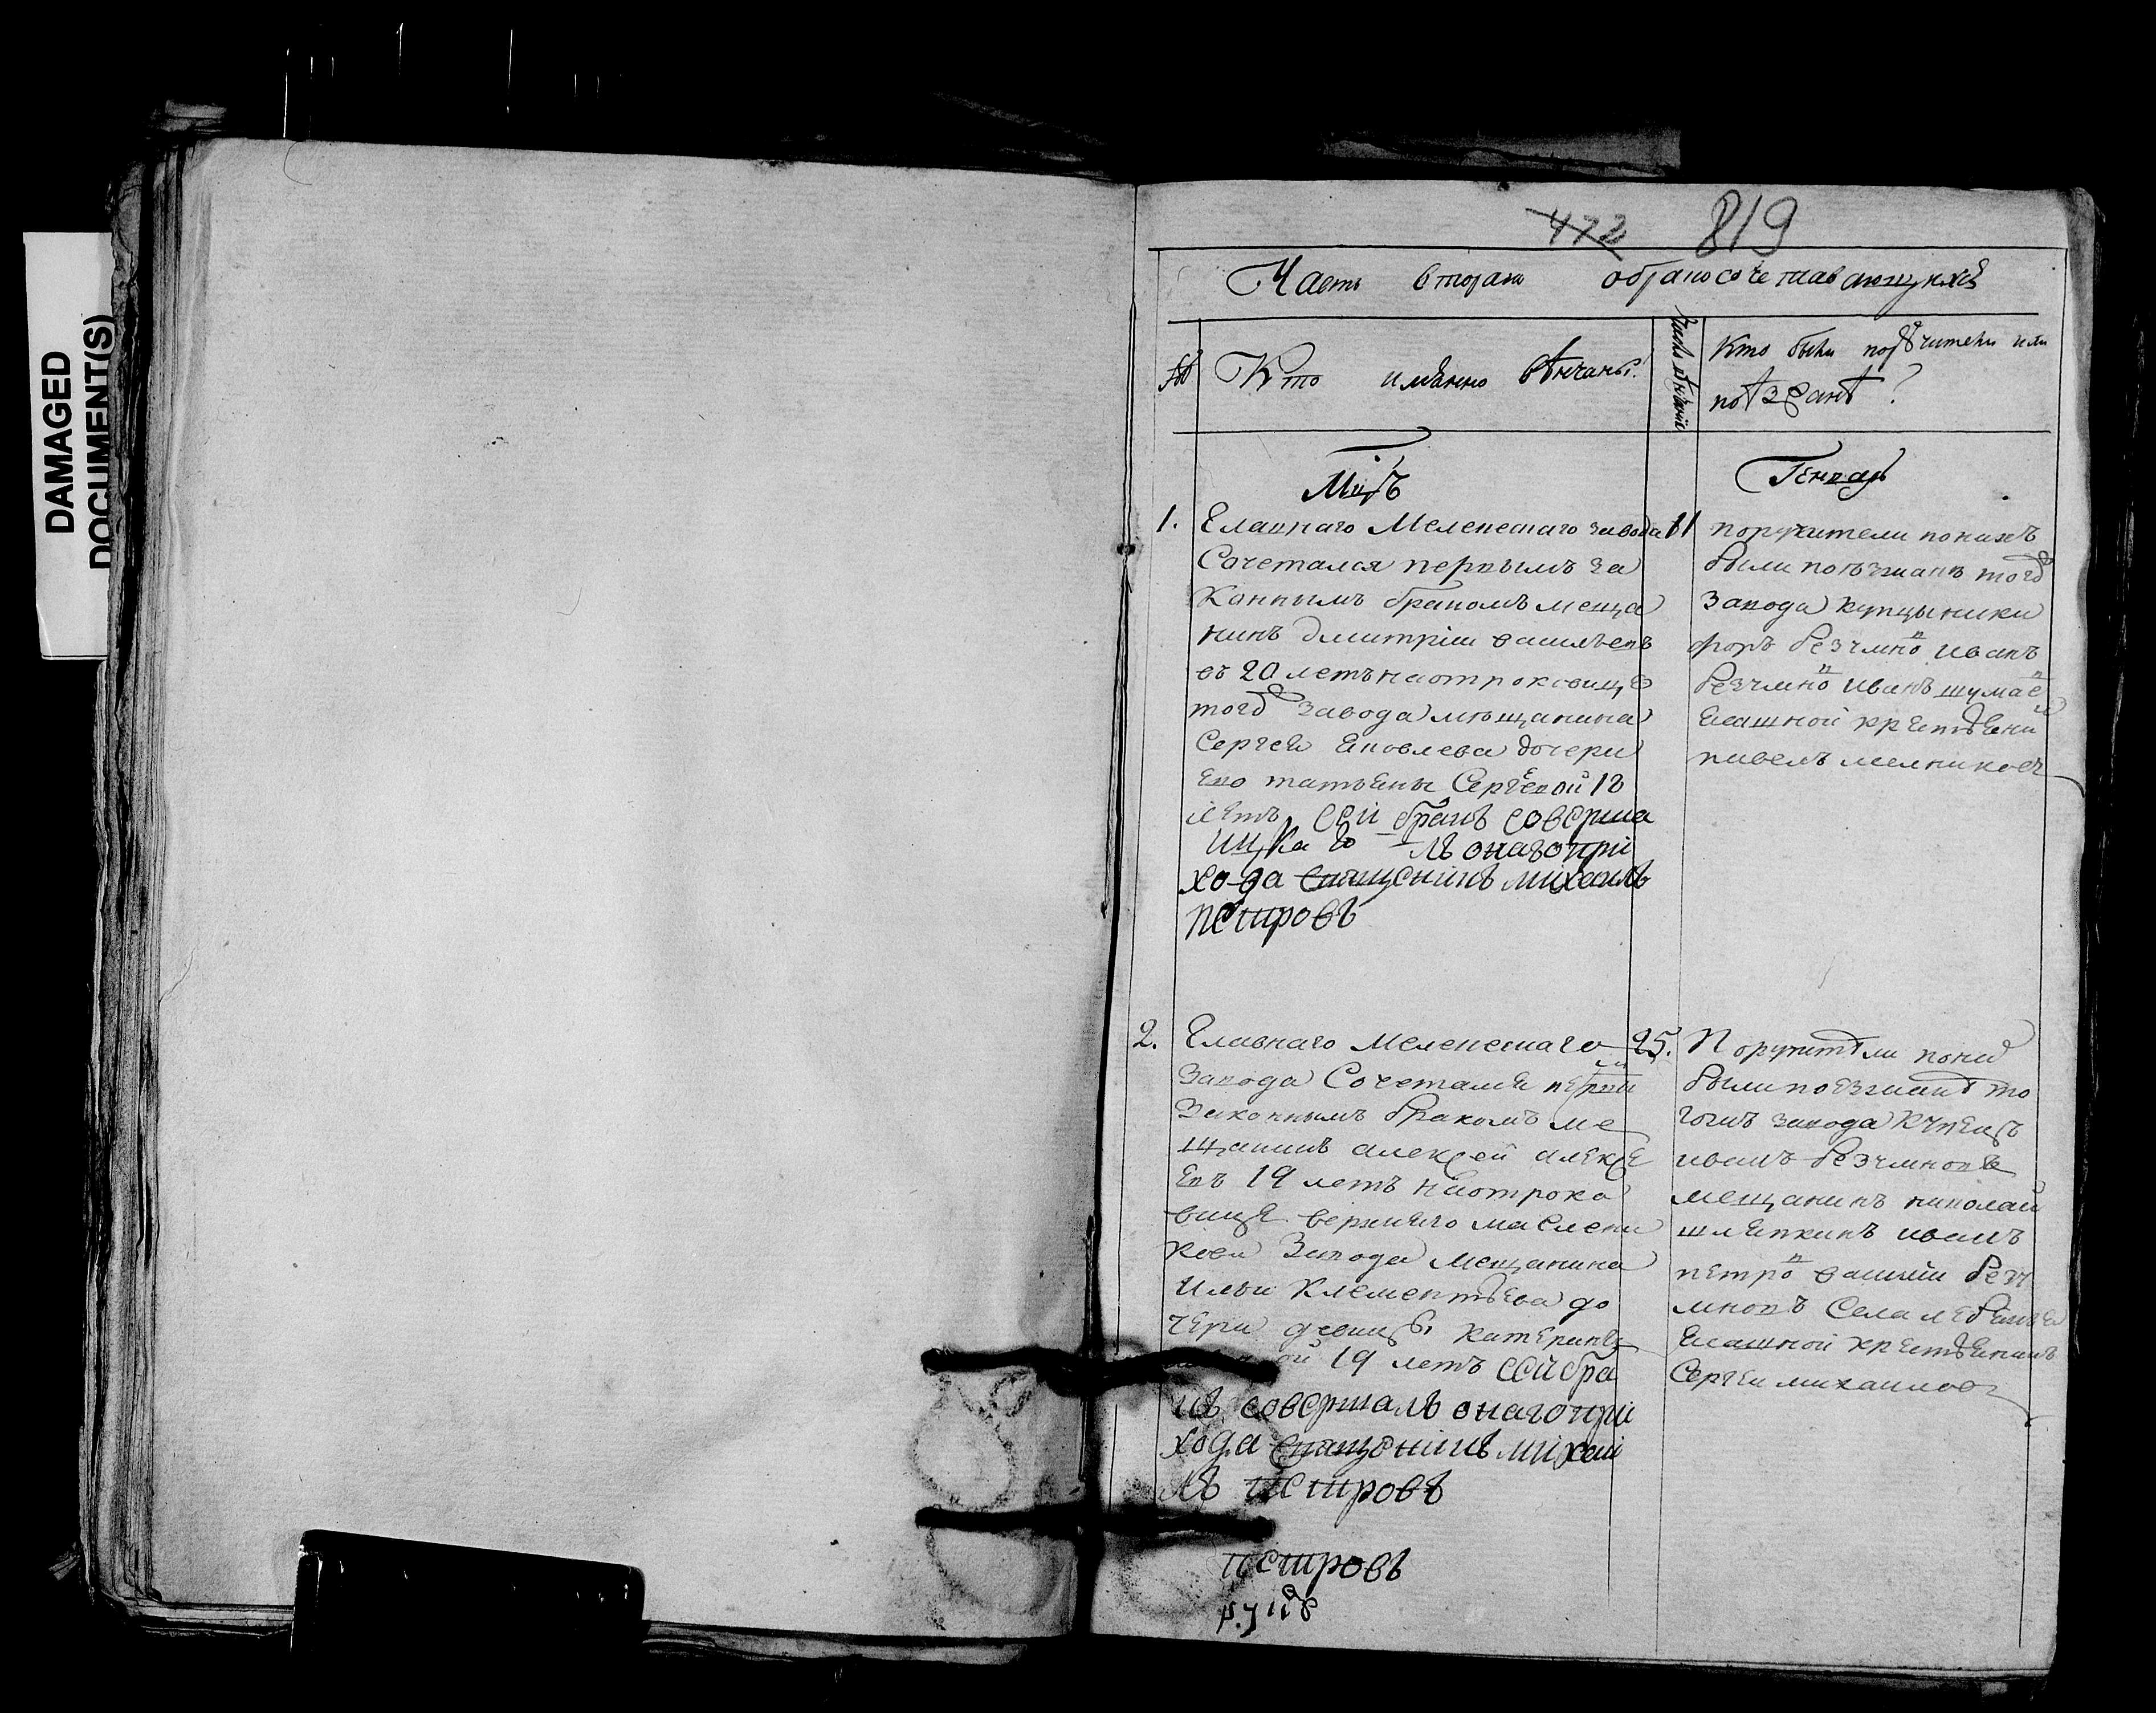 DAMAGED
DOCUMENT(S)
472 819
Часть вторая обраносочетавающихся
№ Кто имянно вѣнчаны. Число вѣнчаніи Кто были поручители или
поѣзжанѣ?
Генварь
1. Елавнаго Меленескаго завода
Сочетался первымъ за
коннымъ бракомъ меща
нинъ дмитріи василъевъ
въ 20 летъ наотроковице
того завода мещанина
Сергея Яковлева дочери
ево татьяны Сергеевой 18
летъ сеи бракъ соверша
лъ онагопри
хода священникъ михаилъ
петровъ
11 поручители поних
были поезжанъ того
завода купцы ники
форъ безчмно иванъ
безчмно иванъ шумае
Елашной крестьени
павелъ мелникоеъ
2. Елавнаго Меленескаго
завода Сочетался первы
законнымъ бракомъ ме
щанинъ алексей алексе
евъ 19 летъ наотроко
вице верхняго маслени
кова завода мещанина
Ильи Клементьева до
чери девицы катерины
19 летъ сей бра
къ совершалъ онагопри
хода священникъ михаи
лъ петровъ
25. Поручители пони
были поезжанѣ то
гожъ завода купецъ
иванъ безчмновъ
мещанинъ николаи
шляпкинъ иванъ
петро васили безч
мновъ Села
Елашной крестьенинъ
Сергеи михаилов
петровъ